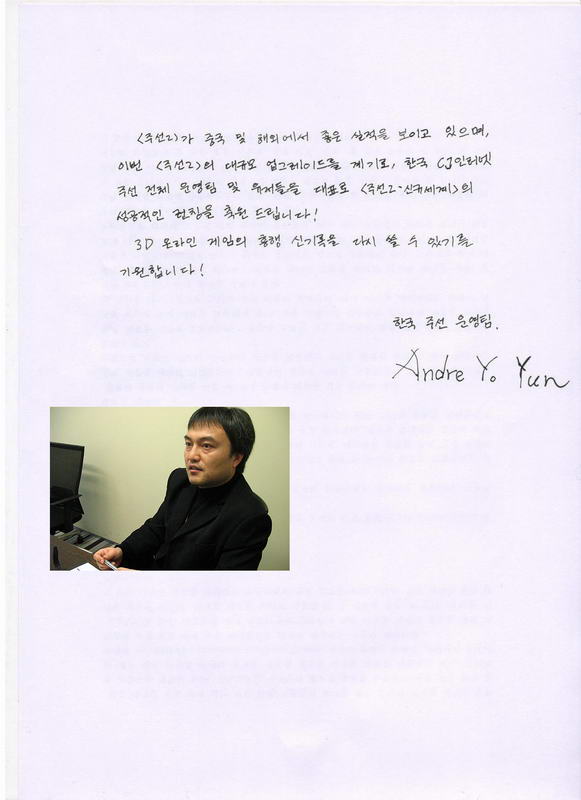 <주선2>가 중국 및 해외에서 좋은 실적을 보이고 있으며,
이번 <주선2>의 대규모 업그레이드를 계기로, 한국 CJ인터넷
주선 전체 운영팀 및 유저들을 대표로 <주선2-신규세계>의
성공적인 런칭을 축원 드립니다!
3D 온라인 게임의 흥행 신기록을 다시 쓸 수 있기를
기원합니다!
한국 주선 운영팀.
Andre Yo Yun